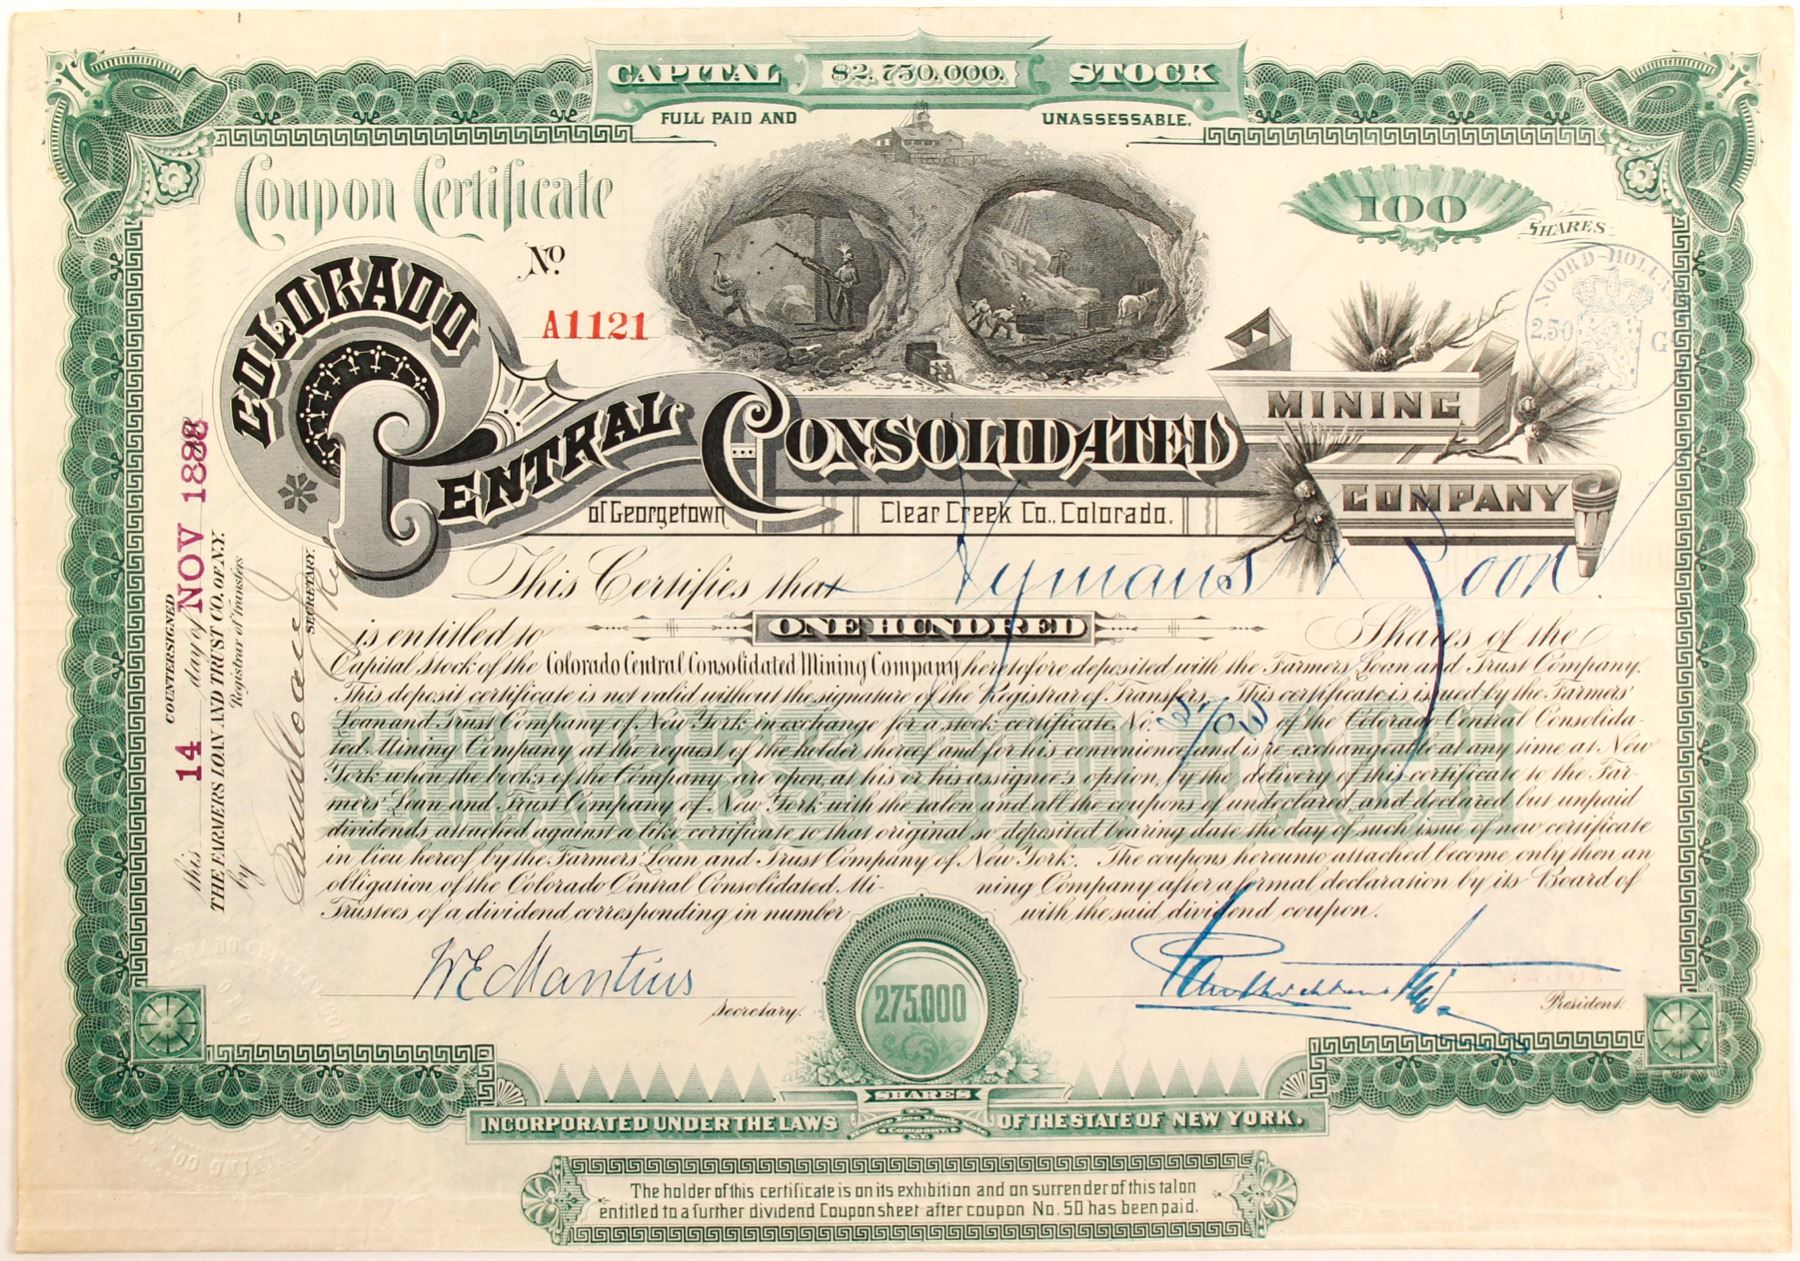 CAPITAL $2,750,000. STOCK
FULL PAID AND UNASSESSABLE.
Coupon Certificate
No
A1121
100
SHARES
NOORD-HOLLA
2.50 G
COLORADO
CENTRAL CONSOLIDATED
MINING
COMPANY
of Georgetown Clear Creek Co., Colorado.
This Certifies that Hymans &
is entitled to ONE HUNDRED Shares of the
Capital stock of the Colorado Central Consolidated Mining Company heretofore deposited with the Farmers Loan and Trust Company.
This deposit certificate is not valid without the signature of the Registrar of Transfers. This certificate is issued by the Farmers'
Loan and Trust Company of New York in exchange for a stock certificate No. of the Colorado Central Consolida-
ted Mining Company at the request of the holder thereof and for his convenience and is re-exchangeable at any time at New
York when the books of the Company are open, at his or his assignee's option, by the delivery of this certificate to the Far-
mers' Loan and Trust Company of New York with the talon and all the coupons of undeclared, and declared but unpaid
dividends attached against a like certificate to that original so deposited bearing date the day of such issue of new certificate
in lieu hereof by the Farmers' Loan and Trust Company of New York. The coupons hereunto attached become only then an
obligation of the Colorado Central Consolidated Mi- ning Company after a formal declaration by its Board of
Trustees of a dividend corresponding in number with the said dividend coupon.
COUNTERSIGNED
this 14 day of NOV 1888
THE FARMERS LOAN AND TRUST CO. OF N.Y.
Registrar of Transfers
by
SECRETARY.
W E Mantius
Secretary.
President.
275.000
SHARES
INCORPORATED UNDER THE LAWS OF THE STATE OF NEW YORK.
The holder of this certificate is on its exhibition and on surrender of this talon
entitled to a further dividend Coupon sheet after coupon No. 50 has been paid.